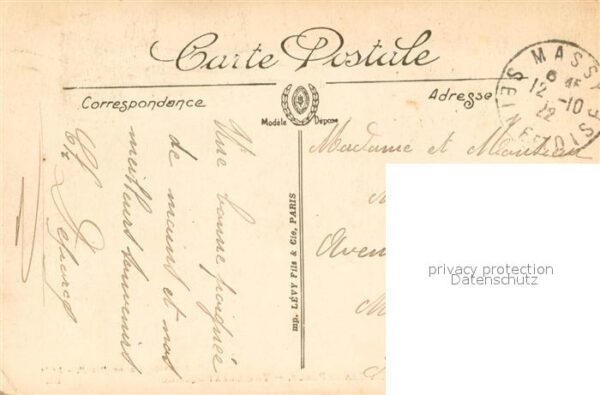 Carte Postale
Correspondance
Adresse
Modèle Déposé
MASSY
SEINE ET OISE
6 45
12 - 10
22
Une bonne poignée
de main et nos
meilleurs souvenirs
imp. LÉVY Fils & Cie, PARIS
Madame et Monsieur
Aven
privacy protection
Datenschutz